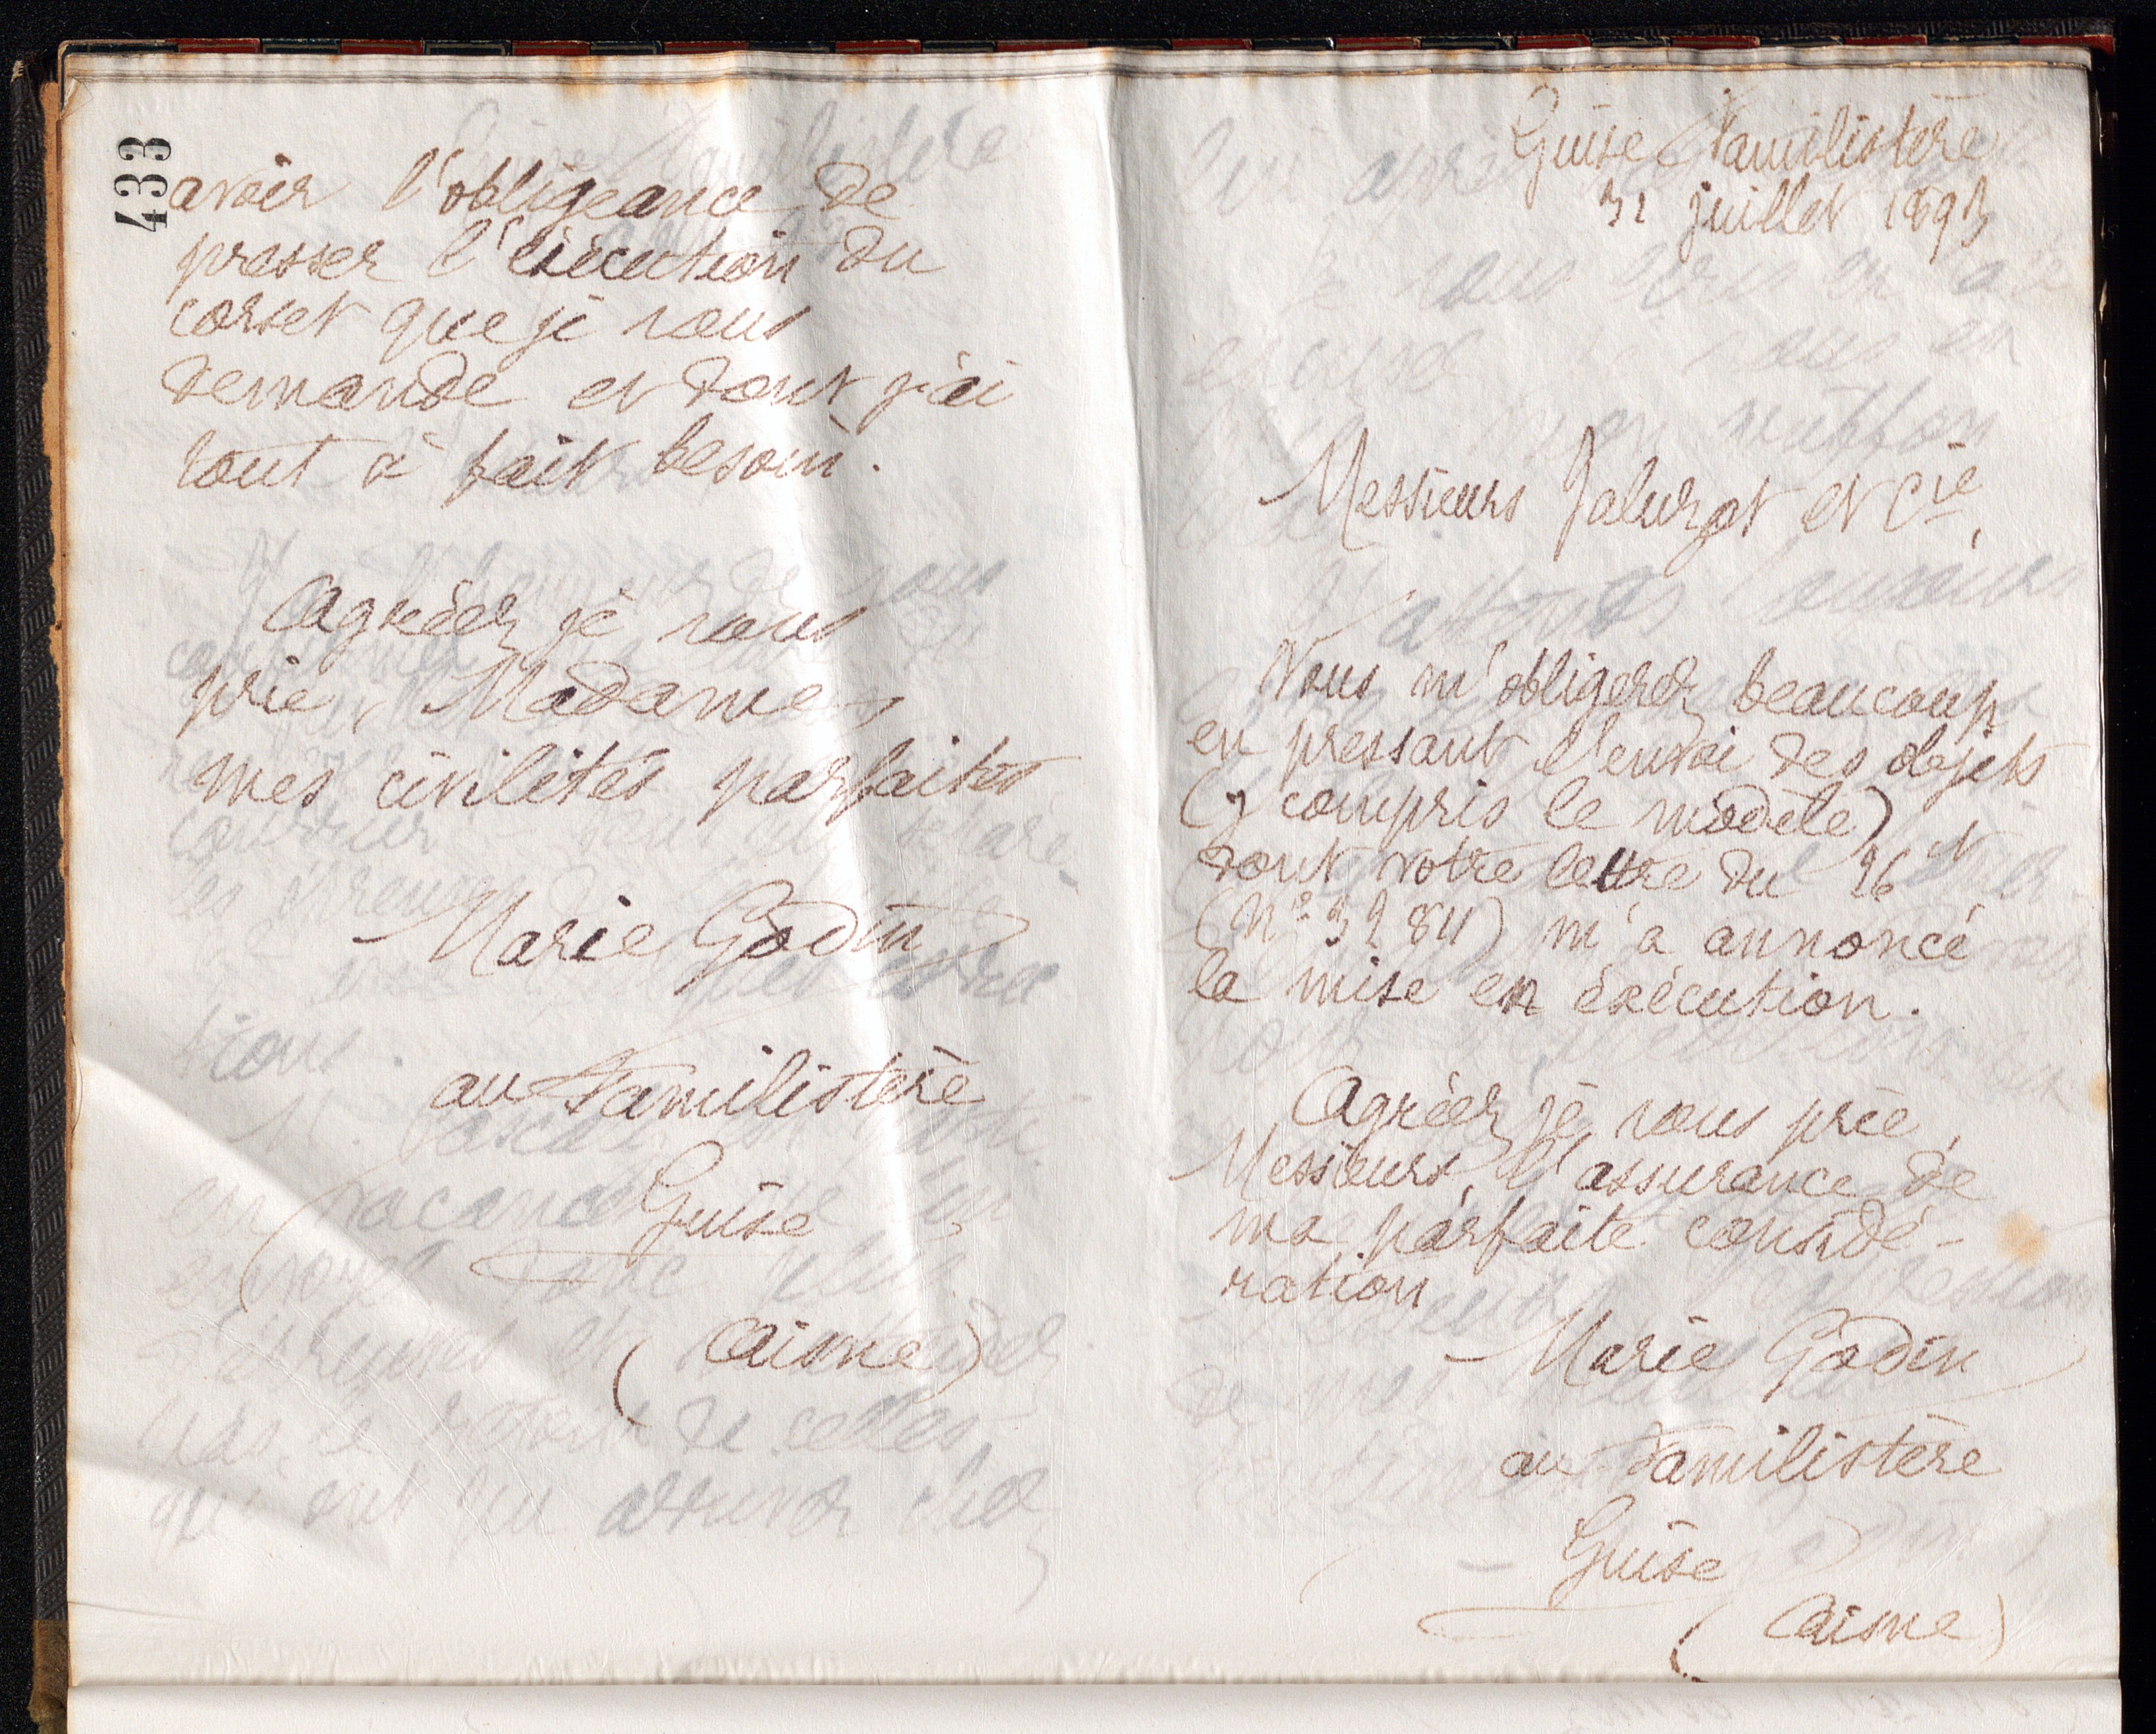 433
avoir l'obligeance de
presser l'exécution du
corset que je vous
demande et dont j'ai
tout à fait besoin.
Agréez, je vous
prie, Madame,
mes civilités parfaites
Marie Godin
au Familistère
Guise
(Aisne)
Guise Familistère
31 juillet 1893
Messieurs Jaluzot et Cie,
Vous m'obligerez beaucoup
en pressant l'envoi des objets
(y compris le modèle)
dont votre lettre du 26 Ct
(No 3284) m'a annoncé
la mise en exécution.
Agréez, je vous prie,
Messieurs, l'assurance de
ma parfaite considé-
ration
Marie Godin
au Familistère
Guise
(Aisne)